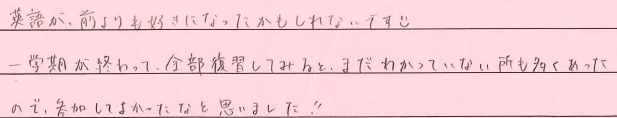 英語が、前よりも好きになったかもしれないです☺
一学期が終わって、全部復習してみると、まだわかっていない所も多くあった
ので、参加してよかったなと思いました!!